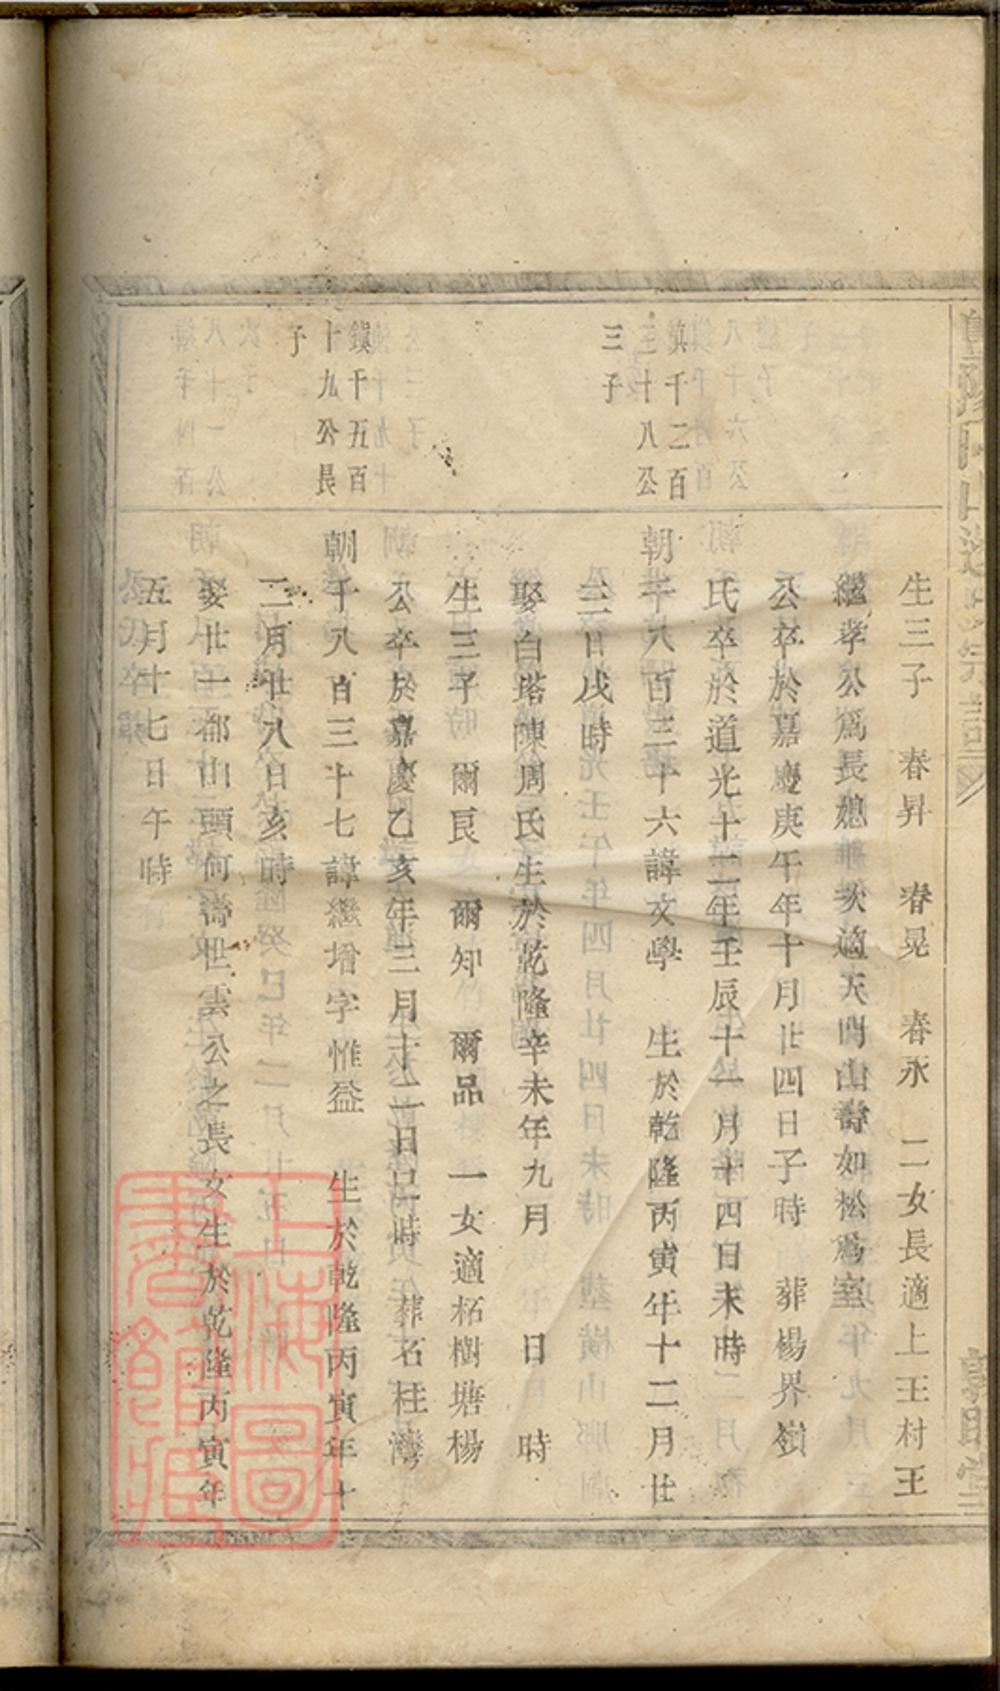 生三子　春昇　春晃　春永　二女長適上王村王
繼孝公爲長媳　次適天門山壽如松爲室
公卒於嘉慶庚午年十月廿四日子時　葬楊界嶺
氏卒於道光十二年壬辰十一月十四日未時
鎮千二百
三十八公
三子
朝千八百三十六諱文學　生於乾隆丙寅年十二月廿
三日戌時
娶白塔陳周氏生於乾隆辛未年九月　日　時
生三子　爾艮　爾知　爾品　一女適柘樹塘楊
公卒於嘉慶乙亥年三月十二日巳時　葬石柱灣
鎮千五百
十九公長
子
朝千八百三十七諱繼增字惟益　生於乾隆丙寅年十
二月廿八日亥時
娶廿一都山頭何喬世雲公之長女生於乾隆丙寅年
五月十七日午時
上海圖書館藏